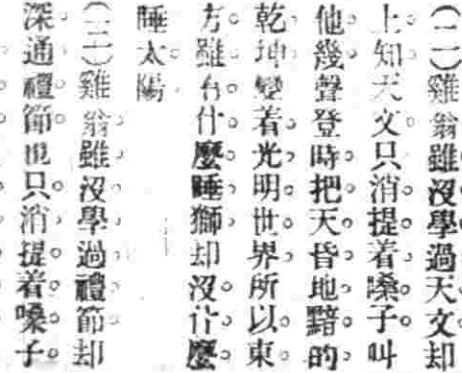 (二)雞翁雖沒學過天文却
上知天文只消提着嗓子叫
他幾聲登時把天昏地黯的
乾坤變着光明世界所以東
方雖有什麼睡獅却沒什麼
睡太陽
(三)雞翁雖沒學過禮節却
深通禮節也只消提着嗓子